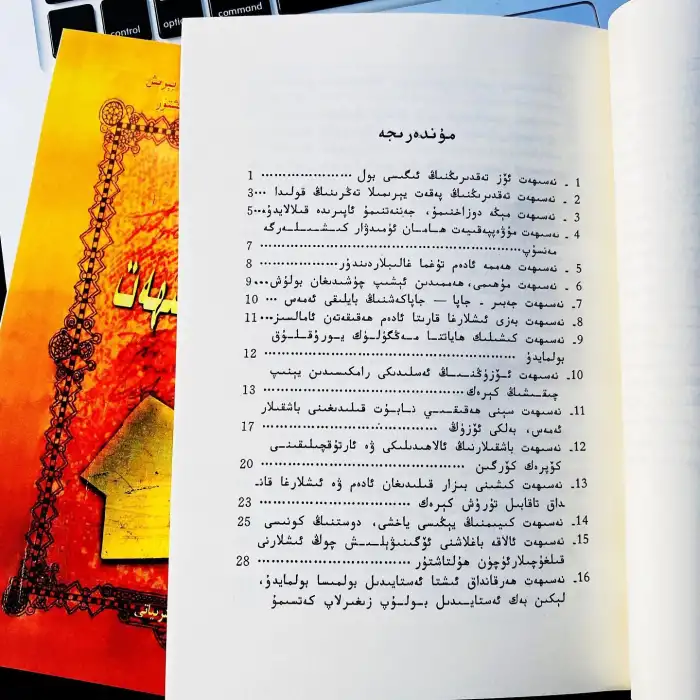 control
option
command
يېرىش
مۇندەرىجە
1 ـ نەسىھەت ئۆز تەقدىرىڭنىڭ ئىگىسى بول ................... 1
2 ـ نەسىھەت تەقدىرىڭنىڭ پەقەت يېرىمىلا تەڭرىنىڭ قولىدا ...3
3 ـ نەسىھەت مېڭە دوزاخنىمۇ، جەننەتنىمۇ ئاپىرىدە قىلالايدۇ...5
4 ـ نەسىھەت مۇۋەپپەقىيەت ھامان ئۈمىدۋار كىشىلەرگە
مەنسۇپ .......................................... 7
5 ـ نەسىھەت ھەممە ئادەم تۇغما غالىبلاردىندۇر .............. 8
6 ـ نەسىھەت مۇھىمى، ھەممىدىن ئېشىپ چۈشىدىغان بولۇش...9
7 ـ نەسىھەت جەبىر ـ جاپا — جاپاكەشنىڭ بايلىقى ئەمەس ... 10
8 ـ نەسىھەت بەزى ئىشلارغا قارىتا ئادەم ھەقىقەتەن ئامالسىز... 11
9 ـ نەسىھەت كىشىلىك ھاياتتا مەڭگۈلۈك يورۇقلۇق
بولمايدۇ ................................... 12
10ـ نەسىھەت ئۆزۈڭنىڭ ئەسلىدىكى رامكىسىدىن يېنىپ
چىقىشىڭ كېرەك ................................ 13
11ـ نەسىھەت سېنى ھەقىقىي نابۇت قىلىدىغىنى باشقىلار
ئەمەس، بەلكى ئۆزۈڭ .......................... 17
12ـ نەسىھەت باشقىلارنىڭ ئالاھىدىلىكى ۋە ئارتۇقچىلىقىنى
كۆپرەك كۆرگىن .............................. 20
13ـ نەسىھەت كىشىنى بىزار قىلىدىغان ئادەم ۋە ئىشلارغا قانـ
داق تاقابىل تۇرۇش كېرەك ...................... 23
14ـ نەسىھەت كىيىمنىڭ يېڭىسى ياخشى، دوستنىڭ كونىسى 25
15ـ نەسىھەت ئالاقە باغلاشنى ئۆگىنىۋېلىش چوڭ ئىشلارنى
قىلغۇچىلارئۈچۈن ھۇلتاشتۇر ...................... 28
16ـ نەسىھەت ھەرقانداق ئىشتا ئەستايىدىل بولمىسا بولمايدۇ،
لېكىن بەك ئەستايىدىل بولۇپ زىغىرلاپ كەتسىمۇ